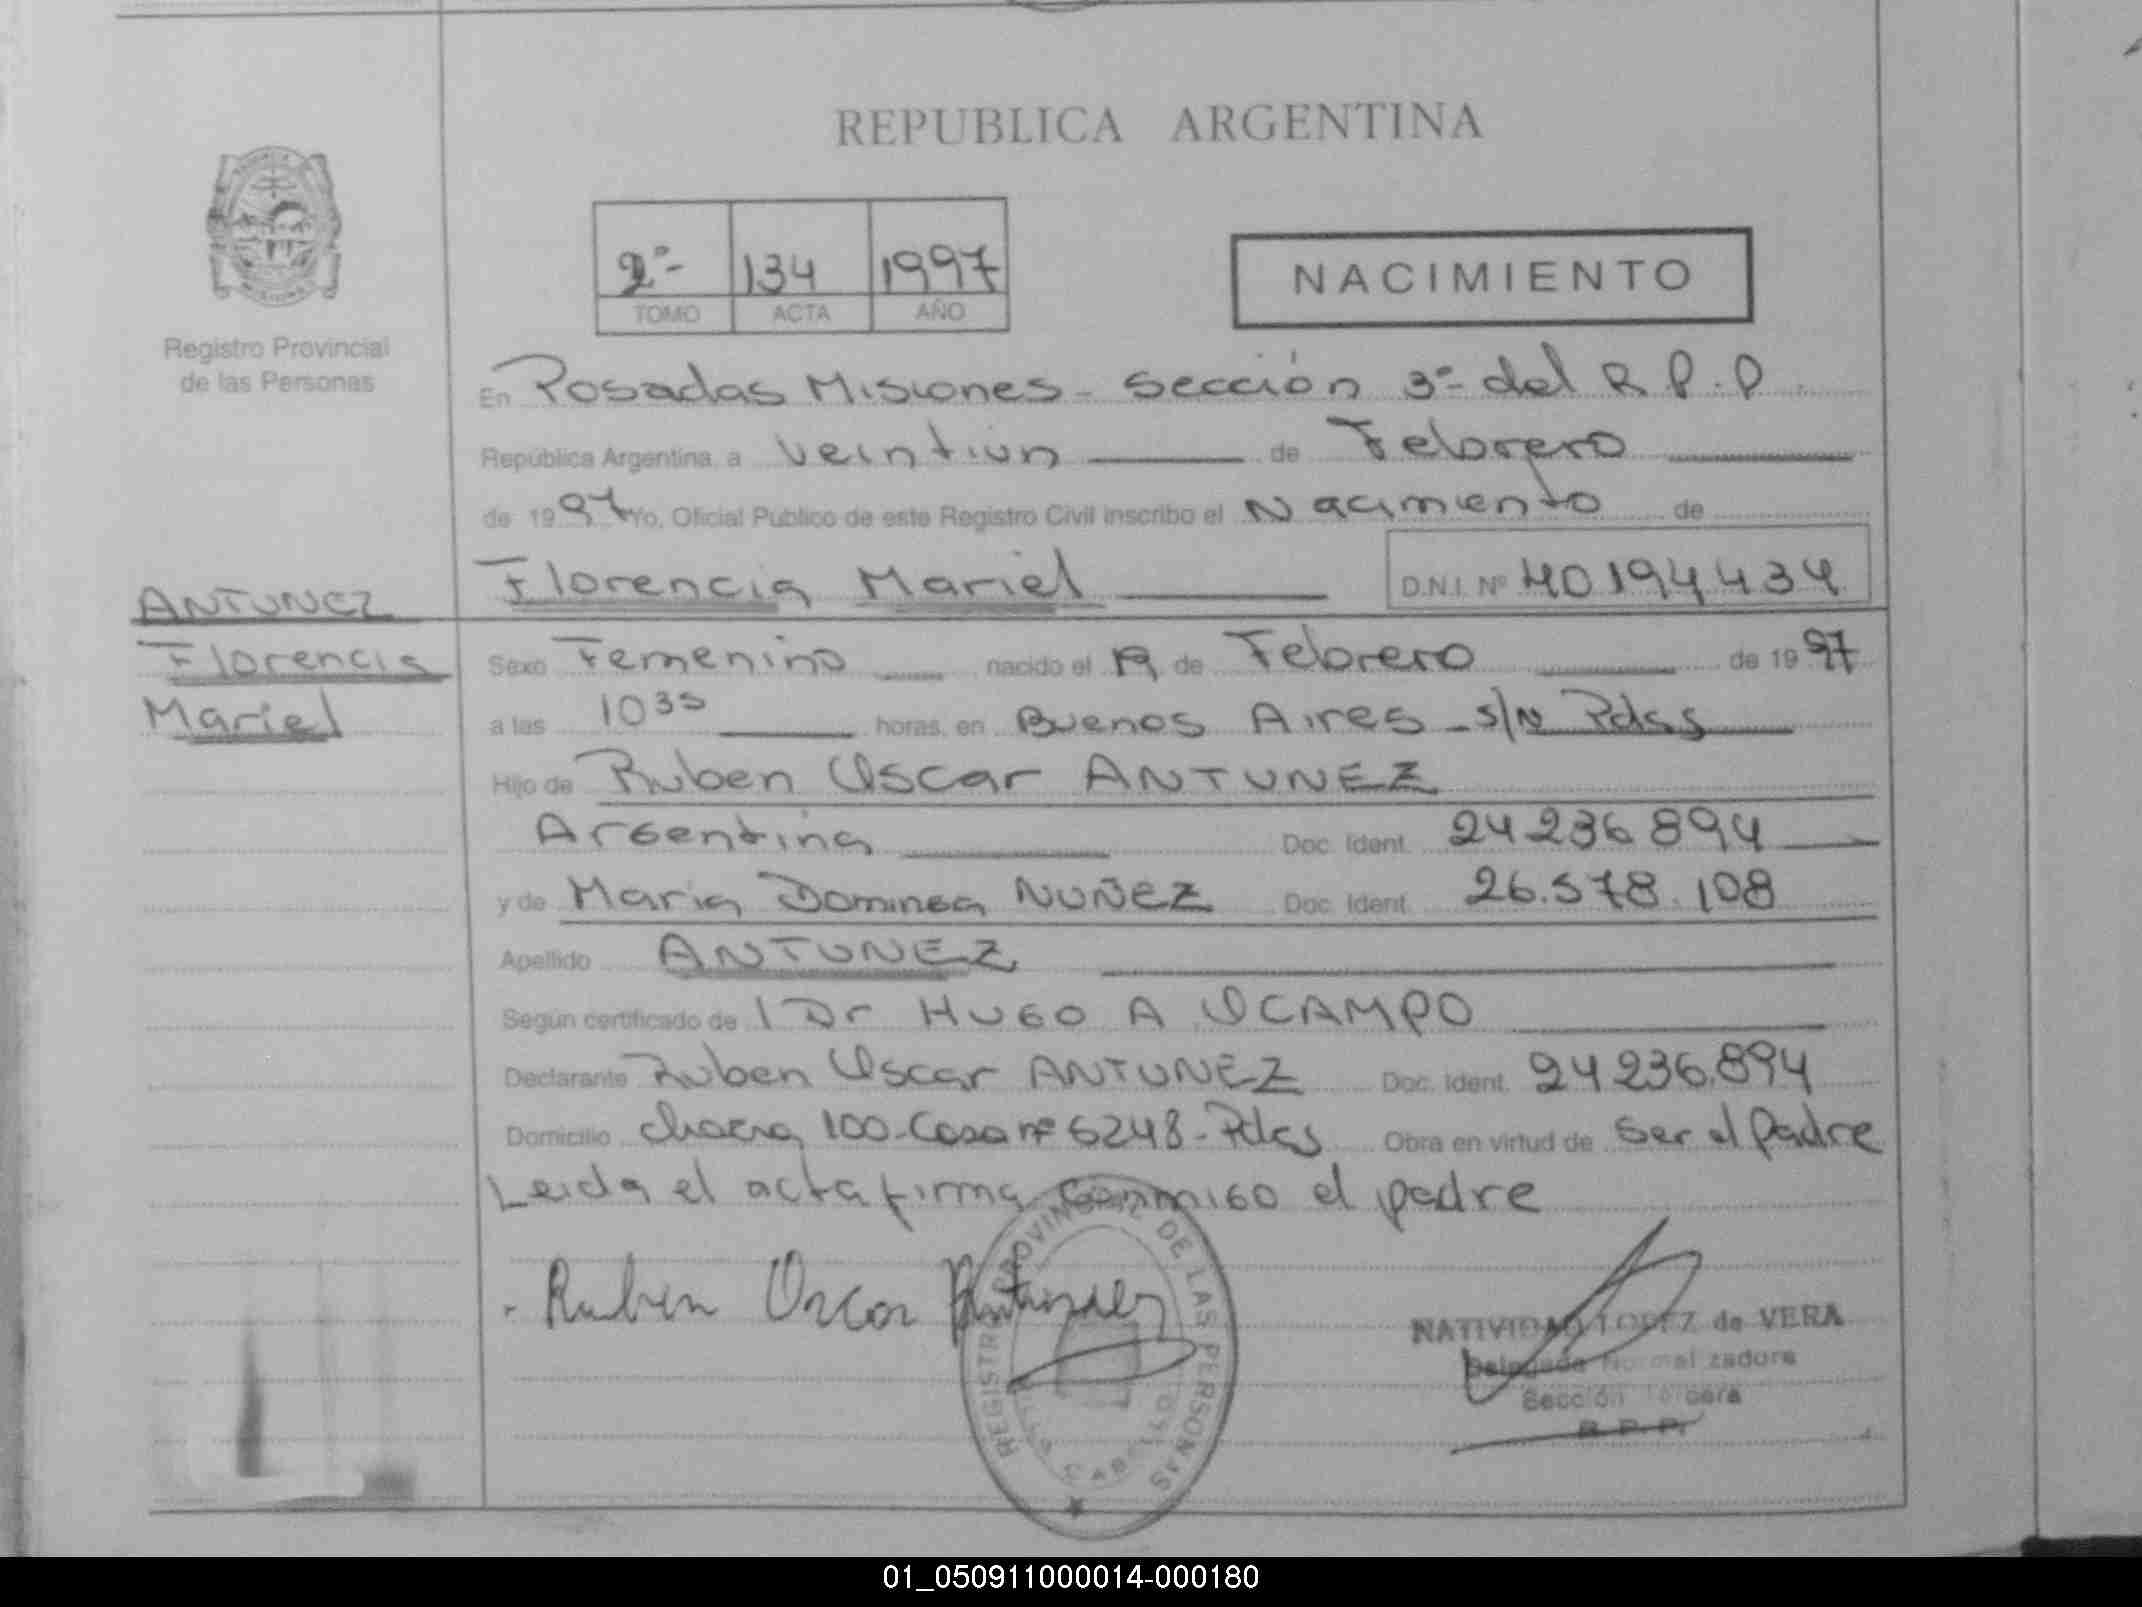 REPUBLICA ARGENTINA
2º- 134 1997
TOMO ACTA AÑO
NACIMIENTO
Registro Provincial
de las Personas
En Posadas Misiones - Sección 3º- del R.P.P.
República Argentina, a veintiun de Febrero
de 1997 Yo, Oficial Publico de este Registro Civil inscribo el Nacimiento de
Florencia Mariel D.N.I. Nº 40194434
ANTUNEZ
Florencia
Mariel
Sexo Femenino nacido el 19 de Febrero de 1997
a las 1035 horas, en Buenos Aires - s/n Pdas
Hijo de Ruben Oscar ANTUNEZ
Argentina Doc. Ident. 24 236 894
y de Maria NUÑEZ Doc. Ident. 26.578.108
Apellido ANTUNEZ
Según certificado de Dr HUGO A OCAMPO
Declarante Ruben Oscar ANTUNEZ Doc. Ident. 24 236.894
Domicilio chacra 100 - Casa nº 6248 - Pdas Obra en virtud de ser el padre
Leida el acta firma conmigo el padre
Ruben Oscar Antunez
REGISTRO PROVINCIAL DE LAS PERSONAS
NATIVIDAD LOPEZ de VERA
Delegada Normalizadora
Sección Tercera
R.P.P.
01_050911000014-000180